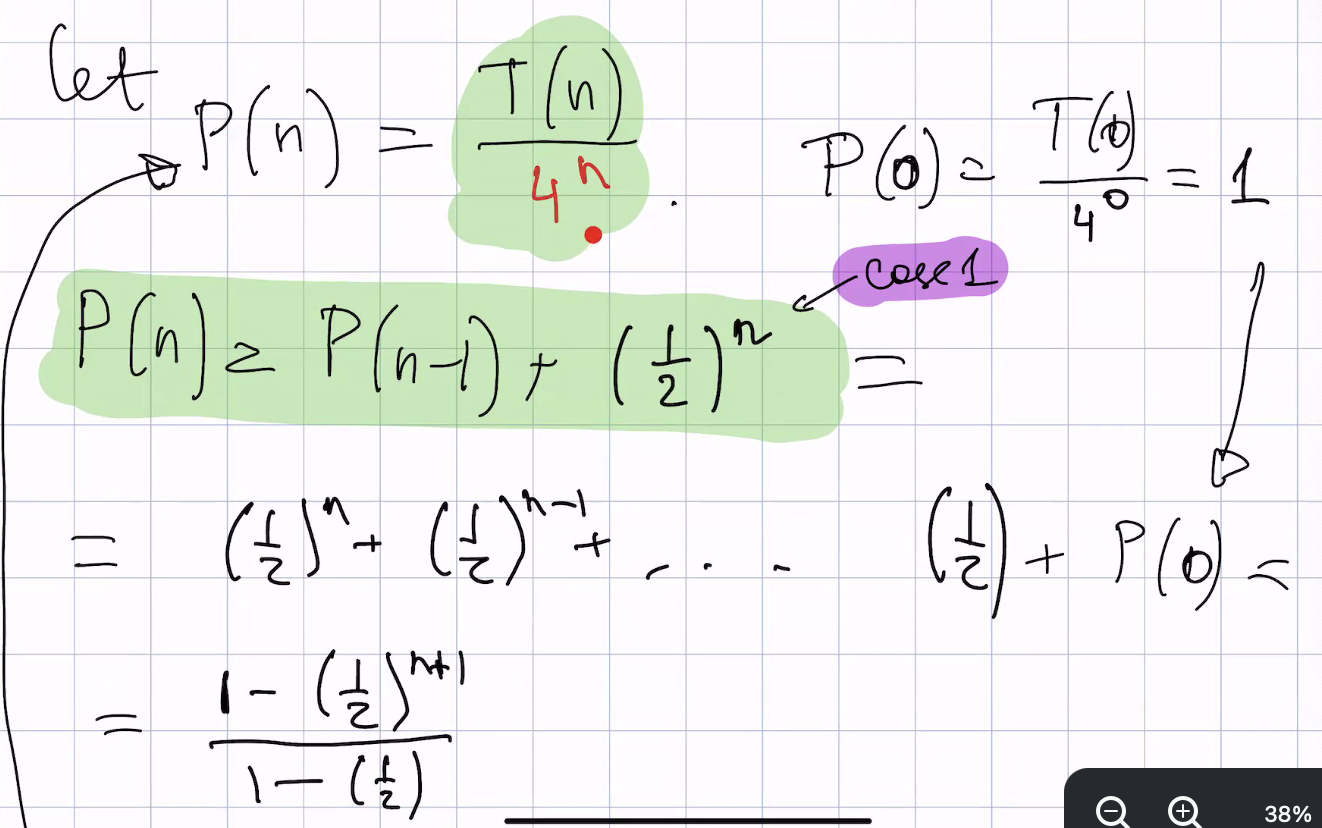 let P(n) = T(n)/4^n . P(0) = T(0)/4^0 = 1
case 1
P(n) = P(n-1) + (1/2)^n =
= (1/2)^n + (1/2)^{n-1} + . . . (1/2) + P(0) =
= (1 - (1/2)^{n+1})/(1 - (1/2))
38%